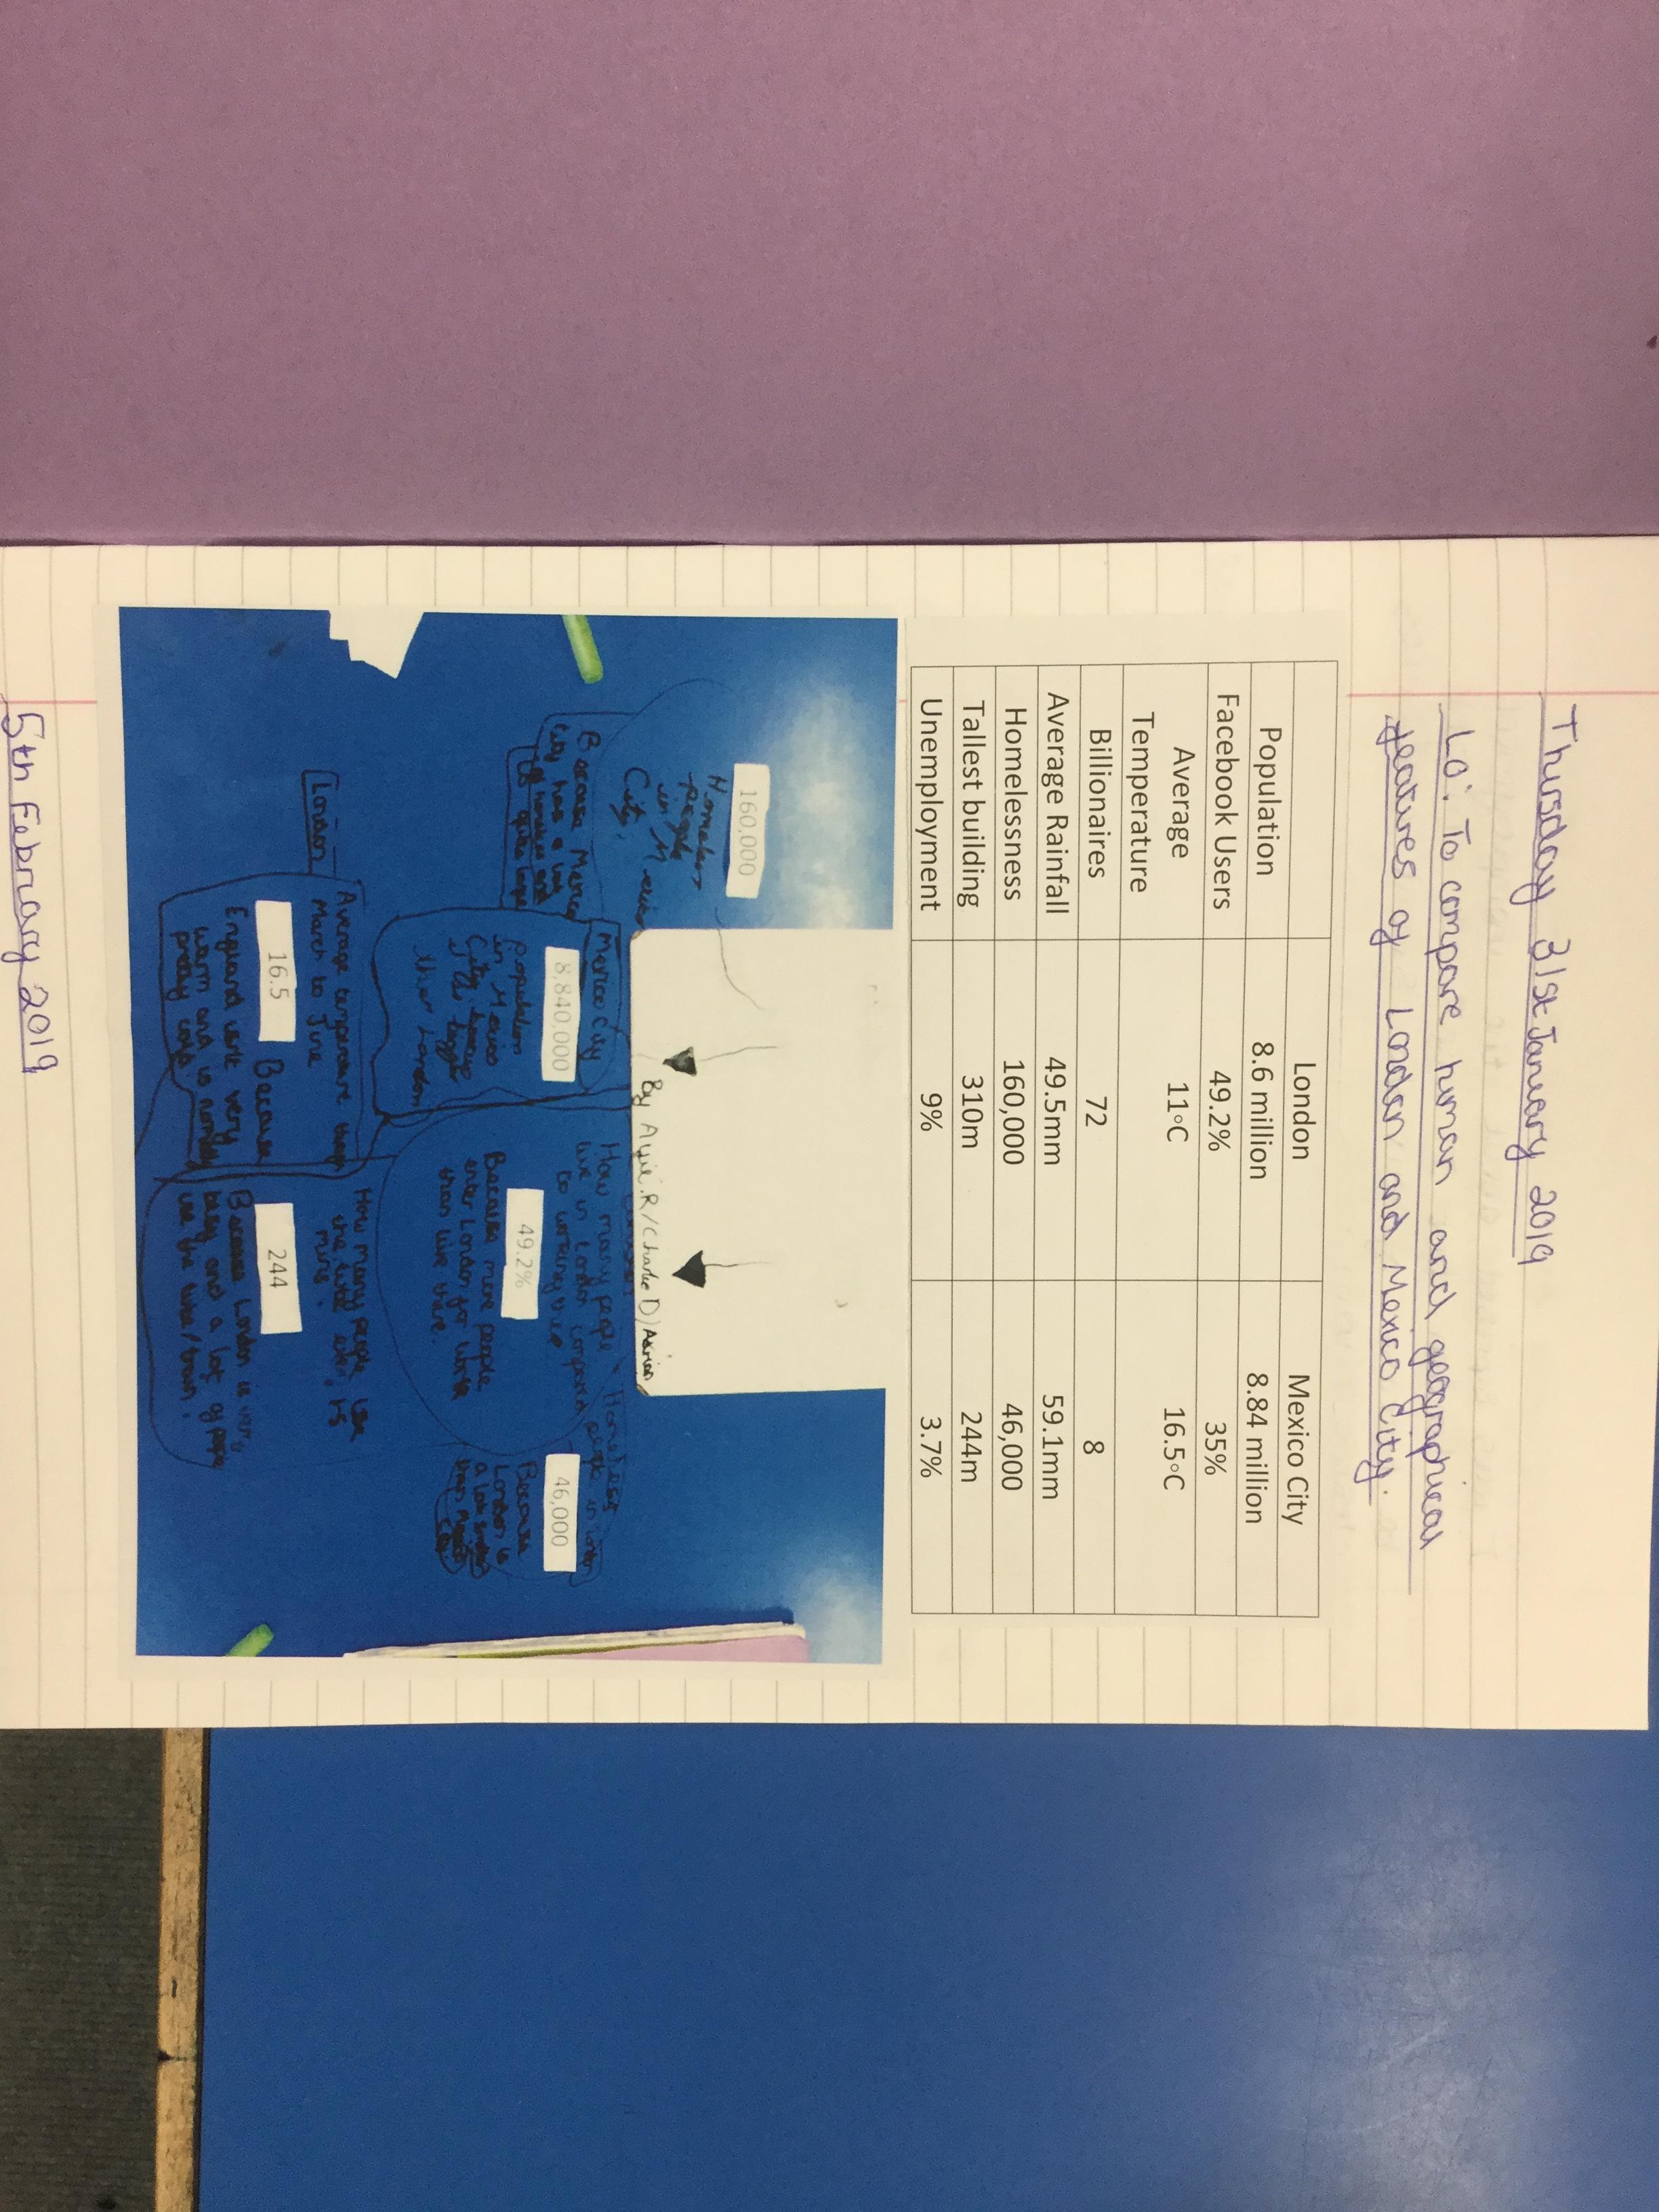 Thursday 31st January 2019
LO: To compare human and geographical
features of London and Mexico City.
London Mexico City
Population 8.6 million 8.84 million
Facebook Users 49.2% 35%
Average
Temperature 11°C 16.5°C
Billionaires 72 8
Average Rainfall 49.5mm 59.1mm
Homelessness 160,000 46,000
Tallest building 310m 244m
Unemployment 9% 3.7%
160,000
Homeless
people
in Mexico
City.
Because Mexico
City has a
By R/Charlie D/
Mexico City
8,840,000
Population
in Mexico
City because
it is bigger
than London
How many people
live in London compared
to working there
49.2%
Because more people
enter London for work
than live there.
Homeless
people in London
46,000
Because
London is
a lot smaller
than Mexico
City
London
Average temperature
March to June
16.5
Because
England isn't very
warm and is normally
pretty cold.
How many people use
the tube
244
Because London is very
busy and a lot of people
use the tube/train.
5th February 2019